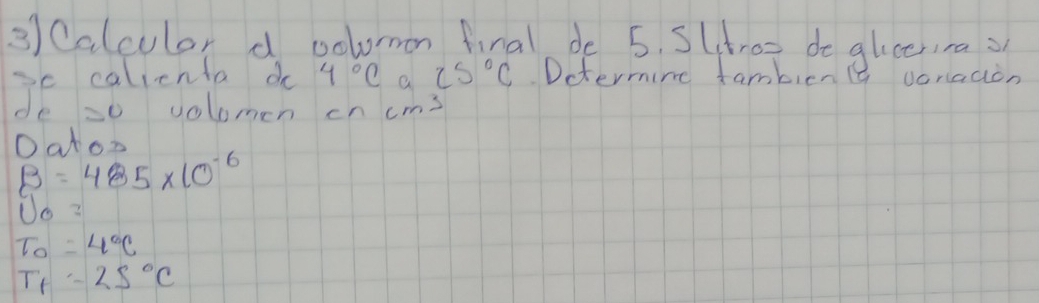 3) Calcular el volumen final de 5.5 litros de glicerina si
se calienta de 4°C a 25°C. Determine tambien la variación
de su volumen en cm³
Datos
β = 485 x 10⁻⁶
Vo =
To = 4°C
Tf = 25°C